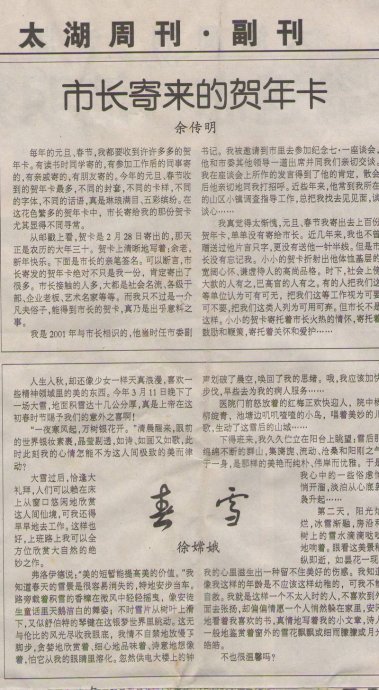 太湖周刊·副刊
市长寄来的贺年卡
余传明
每年的元旦、春节,我都要收到许许多多的贺
年卡。有读书时同学寄的,有参加工作后的同事寄
的,有亲戚寄的,有朋友寄的。今年的元旦、春节收
到的贺年卡最多,不同的封套,不同的卡样,不同
的字体,不同的话语,真是琳琅满目,五彩缤纷。在
这花色繁多的贺年卡中,市长寄给我的那份贺卡
尤其显得不同寻常。
从邮戳上看,贺卡是2月28日寄出的,那天
正是农历的大年三十。贺卡上清晰地写着:余老,
新年快乐。下面是市长的亲笔签名。可以断言,市
长寄发的贺年卡绝对不只是我一份,肯定寄出了
很多。市长接触的人多,大都是社会名流、各级干
部、企业老板、艺术名家等等。而我只不过是一介
凡夫俗子,能得到市长的贺卡,真乃是出乎意料之
事。
我是2001年与市长相识的,他当时任市委副
书记。我被邀请到市里去参加纪念七·一座谈会,
他和市委其他领导一道出席并同我们亲切交谈。
我在座谈会上所作的发言得到了他的肯定,散会
后他亲切地同我打招呼。近些年来,他常到我所在
的山区小镇调查指导工作,总把我找去见见面,谈
谈心……
我真觉得太惭愧,元旦、春节我寄出去上百份
贺年卡,单单没有寄给市长。近几年来,我也不曾
赠送过他片言只字,更没有送他一针半线。但是市
长没有忘记我。小小的贺卡折射出他体恤基层的
宽阔心怀、谦虚待人的高尚品格。时下,社会上傍
大款的人有之,巴高官的人有之。有的人把我们这
等单位认为可有可无,把我们这等工作视为可要
可不要,把我们这类人列为可用可弃。但市长不是
这样。小小的贺卡寄托着市长火热的情怀,寄托着
鼓励和鞭策,寄托着关怀和爱护……
人生入秋,却还像少女一样天真浪漫,喜欢一
些精神领域里的美的东西。今年3月11日晚下了
一场大雪,地面积雪达十几公分厚,真是上帝在这
初春时节赐予我们的意外之喜啊!
“一夜寒风起,万树银花开。”清晨醒来,眼前
的世界银妆素裹,晶莹剔透,如诗、如画又如歌,此
时此刻我的心情怎能不为这人间极致的美而律
动?
大雪过后,恰逢大
礼拜,人们可以赖在床
上从窗口悠闲地欣赏
这人间仙境,可我还得
早早地去工作。这样也
好,上班路上我可以全
方位欣赏大自然的绝
妙之作。
弗洛伊德说:“美的短暂能提高美的价值。”我
知道春天的雪景是很容易消失的,特地安步当车,
路旁载着积雪的香樟在微风中轻轻摇曳,像安徒
生童话里天鹅宫白的舞姿;不时雪片从树叶上滑
下,又似舒伯特的琴键在这银梦世界里脱动。这无
与伦比的风光尽收我眼底,我情不自禁地放慢了
脚步,贪婪地欣赏着、细心地品味着、诗意地想像
着,怕它从我的眼睛里溶化。忽然供电大楼上的钟
春雪
徐嫦娥
声划破了晨空,唤回了我的思绪。哦,我应该加快
步伐,早些去为我的病人服务……
医院门前怒放着的红梅正欢快迎人,院中杨
柳绽青,池塘边叽叽喳喳的小鸟,唱着美妙的儿
歌,生动了这雪后的山城……
下得班来,我久久伫立在阳台上眺望:雪后那
绵绵不断的群山,集漪旎、流动、沧桑和阳刚之气
于一身,是那样的美艳而纯朴、伟岸而优雅。于是
我心中的一些俗虑悄
悄开溜,淡泊从心底袅
袅升起……
第二天,阳光灿
烂,冰雪渐融,房沿和
树上的雪水滴滴嗒嗒
地响着。跟着这美景稍
纵即逝,如昙花一现,
我的心里溢出一种留不住美好的伤感。我知道
像我这样的年龄是不应该这样幼稚的,可我不能
自救。我就是这样一个不太入时的人,不喜欢到外
面去张扬,却偏偏情愿一个人悄然躲在家里,安静
地看着我喜欢的书,真情地写着我的小文章,诗人
一般地鉴赏着窗外的雪花飘飘或细雨朦朦或月光
皓皓。
不也很温馨吗?